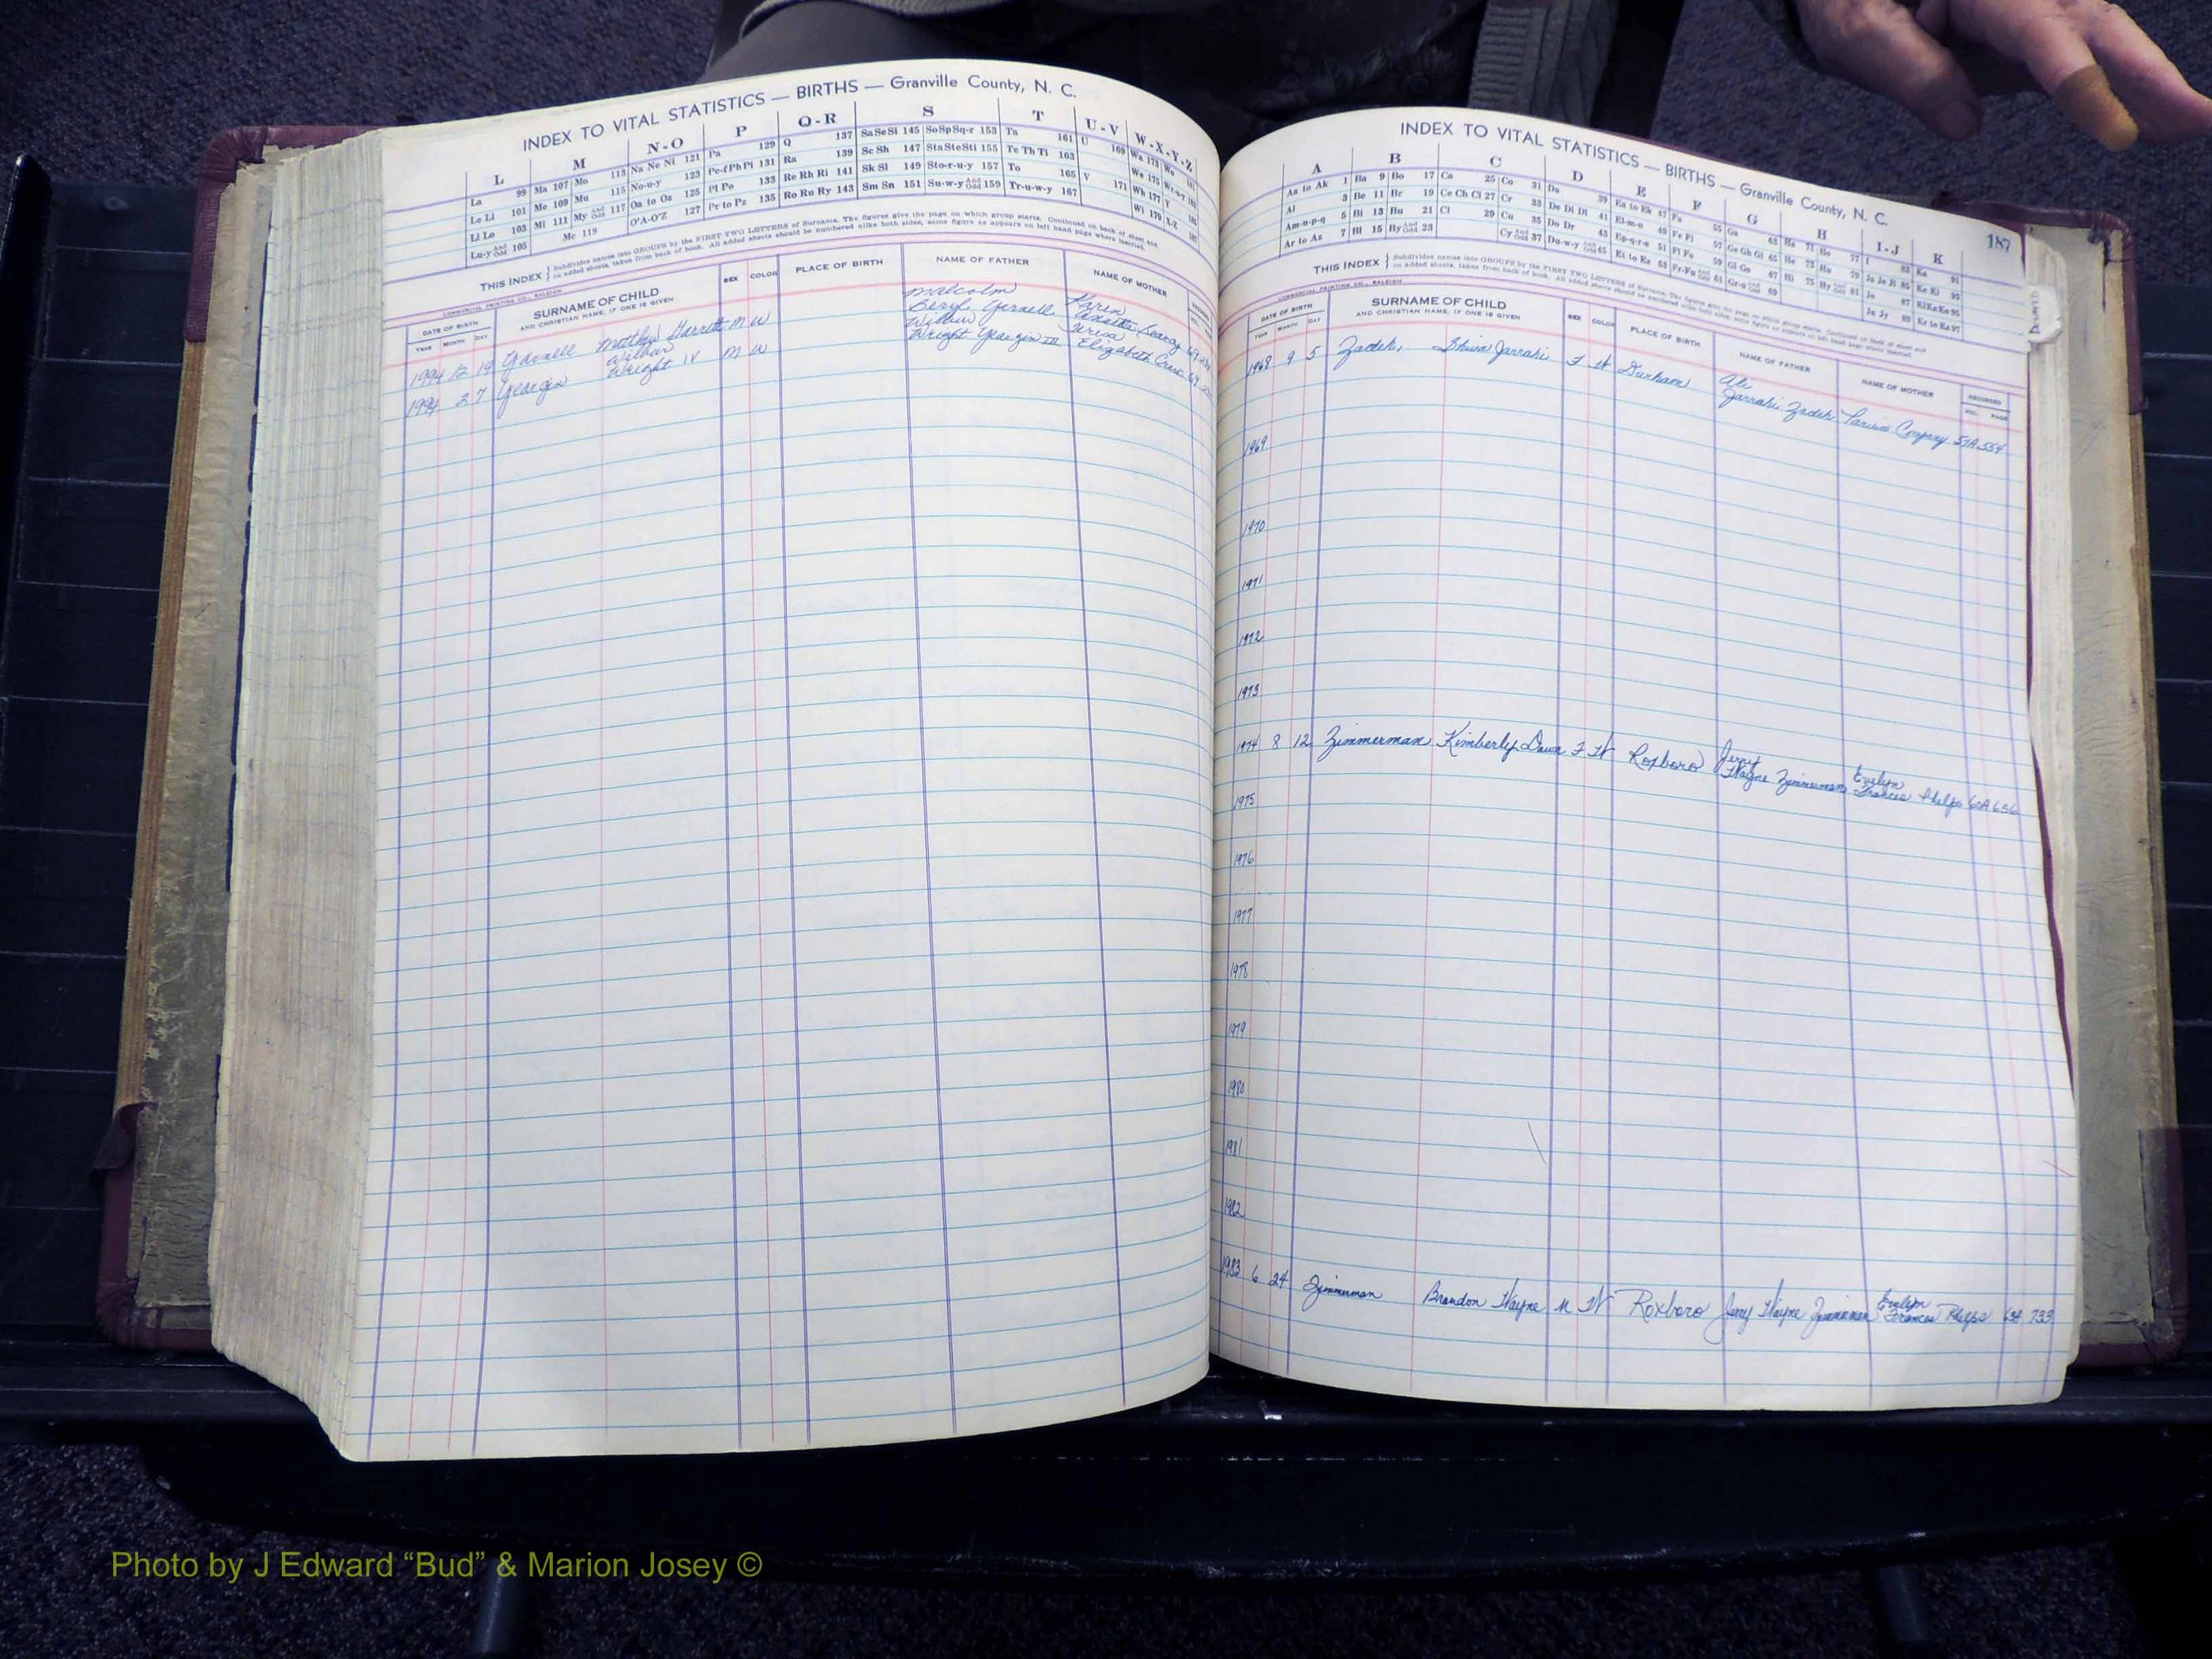 INDEX TO VITAL STATISTICS — BIRTHS — Granville County, N. C.
L M N-O P Q-R S T U-V W-X-Y-Z
La 99 Ma 107 Mo 113 Na Ne Ni 121 Pa 129 Q 137 Sa Se Si 145 So Sp Sq-r 153 Ta 161 U 169 Wa 173 Wo
Le Li 101 Me 109 Mu 115 No-u-y 123 Pe-f Ph Pi 131 Ra 139 Sc Sh 147 Sta Ste Sti 155 Te Th Ti 163 We 175
Ll Lo 103 Mi 111 My And Odd 117 Oa to Oz 125 Pl Po 133 Re Rh Ri 141 Sk Sl 149 Sto-r-u-y 157 To 165 V 171 Wh 177 Y
Lu-y And Odd 105 Mc 119 O'A-O'Z 127 Pr to Pz 135 Ro Ru Ry 143 Sm Sn 151 Su-w-y And Odd 159 Tr-u-w-y 167 Wi 179 X-Z
THIS INDEX } Subdivides names into GROUPS by the FIRST TWO LETTERS of Surname. The figures give the page on which group starts. Continued on back of sheet and
on added sheets, taken from back of book. All added sheets should be numbered alike both sides, same figure as appears on left hand page where inserted.
COMMERCIAL PRINTING CO., RALEIGH
DATE OF BIRTH SURNAME OF CHILD SEX COLOR PLACE OF BIRTH NAME OF FATHER NAME OF MOTHER
YEAR MONTH DAY AND CHRISTIAN NAME, IF ONE IS GIVEN
Malcolm Karen
1994 12 19 Yarnell Matthew Garrett M W Beryl Yarnell
Wilbur Wilbur
1994 2 7 Yeargin Wright IV M W Wright Yeargin III Elizabeth
INDEX TO VITAL STATISTICS — BIRTHS — Granville County, N. C.
187
A B C D E F G H I-J K
Aa to Ak 1 Ba 9 Bo 17 Ca 25 Co 31 Da 39 Ea to Ek 47 Fa 55 Ga 63 Ha 71 Ho 77 I 83 Ka 91
Al 3 Be 11 Br 19 Ce Ch Ci 27 Cr 33 De Di Dl 41 El-m-n 49 Fe Fi 57 Ge Gh Gi 65 He 73 Hu 79 Ja Je Ji 85 Ke Ki 93
Am-n-p-q 5 Bi 13 Bu 21 Cl 29 Cu 35 Do Dr 43 Ep-q-r-s 51 Fl Fo 59 Gl Go 67 Hi 75 Hy And Odd 81 Jo 87 Kl Kn Ko 95
Ar to Az 7 Bl 15 By And Odd 23 Cy And Odd 37 Du-w-y And Odd 45 Et to Ez 53 Fr-Fu And Odd 61 Gr-u And Odd 69 Ju Jy 89 Kr to Kz 97
THIS INDEX } Subdivides names into GROUPS by the FIRST TWO LETTERS of Surname. The figures give the page on which group starts. Continued on back of sheet and
on added sheets, taken from back of book. All added sheets should be numbered alike both sides, same figure as appears on left hand page where inserted.
COMMERCIAL PRINTING CO., RALEIGH
DATE OF BIRTH SURNAME OF CHILD SEX COLOR PLACE OF BIRTH NAME OF FATHER NAME OF MOTHER RECORDED
YEAR MONTH DAY AND CHRISTIAN NAME, IF ONE IS GIVEN VOL. PAGE
Ali
1968 9 5 Zadeh, Jarrahi F W Durham Jarrahi Zadeh 554
1969
1970
1971
1972
1973
Jerry Evelyn
1974 8 12 Zimmerman Kimberly Dawn F W Roxboro Wayne Zimmerman Francis Phelps 60A 656
1975
1976
1977
1978
1979
1980
1981
1982
Evelyn
1983 6 24 Zimmerman Brandon Wayne M W Roxboro Jerry Wayne Zimmerman Frances Phelps 733
Photo by J Edward “Bud” & Marion Josey ©